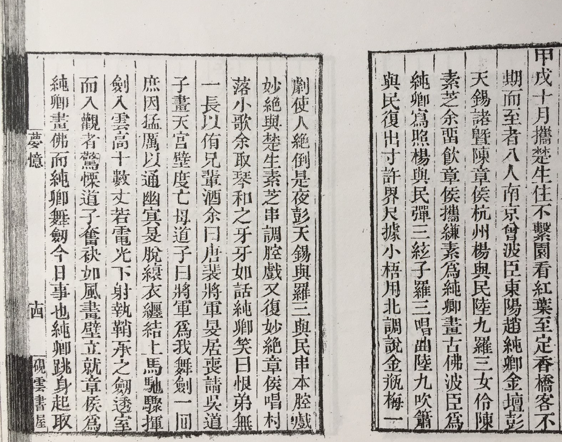 甲戌十月攜楚生住不繫園看紅葉至定香橋客不
期而至者八人南京曾波臣東陽趙純卿金壇彭
天錫諸暨陳章侯杭州楊與民陸九羅三女伶陳
素芝余畱飲章侯攜縑素爲純卿畫古佛波臣爲
純卿寫照楊與民彈三絃子羅三唱曲陸九吹簫
與民復出寸許界尺據小梧用北調說金瓶梅一
劇使人絶倒是夜彭天錫與羅三與民串本腔戲
妙絶與楚生素芝串調腔戲又復妙絶章侯唱村
落小歌余取琴和之牙牙如話純卿笑曰恨弟無
一長以侑兄輩酒余曰唐裴將軍旻居喪請吳道
子畫天宮壁度亡母道子曰將軍爲我舞劒一回
庶因猛厲以通幽冥旻脫縗衣纏結上馬馳驟揮
劒入雲高十數丈若電光下射執鞘承之劒透室
而入觀者驚慄道子奮袂如風畫壁立就章侯爲
純卿畫佛而純卿舞劒今日事也純卿跳身起取
夢憶
硯雲書屋